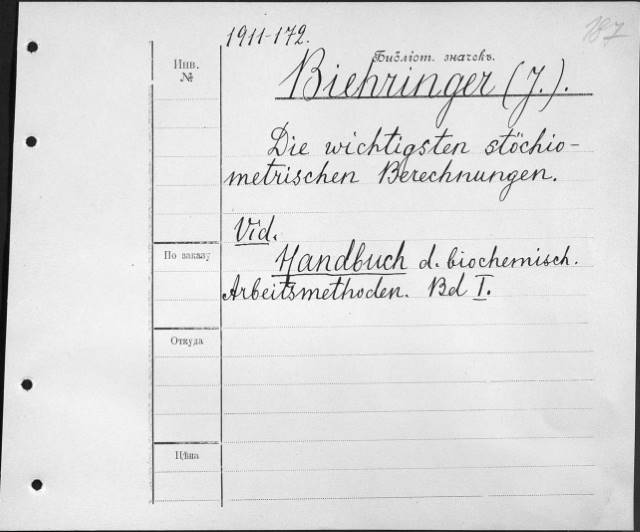 187
1911-172.
Библіот. значекъ.
Инв.
№
Biehringer (J.).
Die wichtigsten stöchio-
metrischen Berechnungen.
Vid.
По заказу
Handbuch d. biochemisch.
Arbeitsmethoden. Bd I.
Откуда
Цѣна